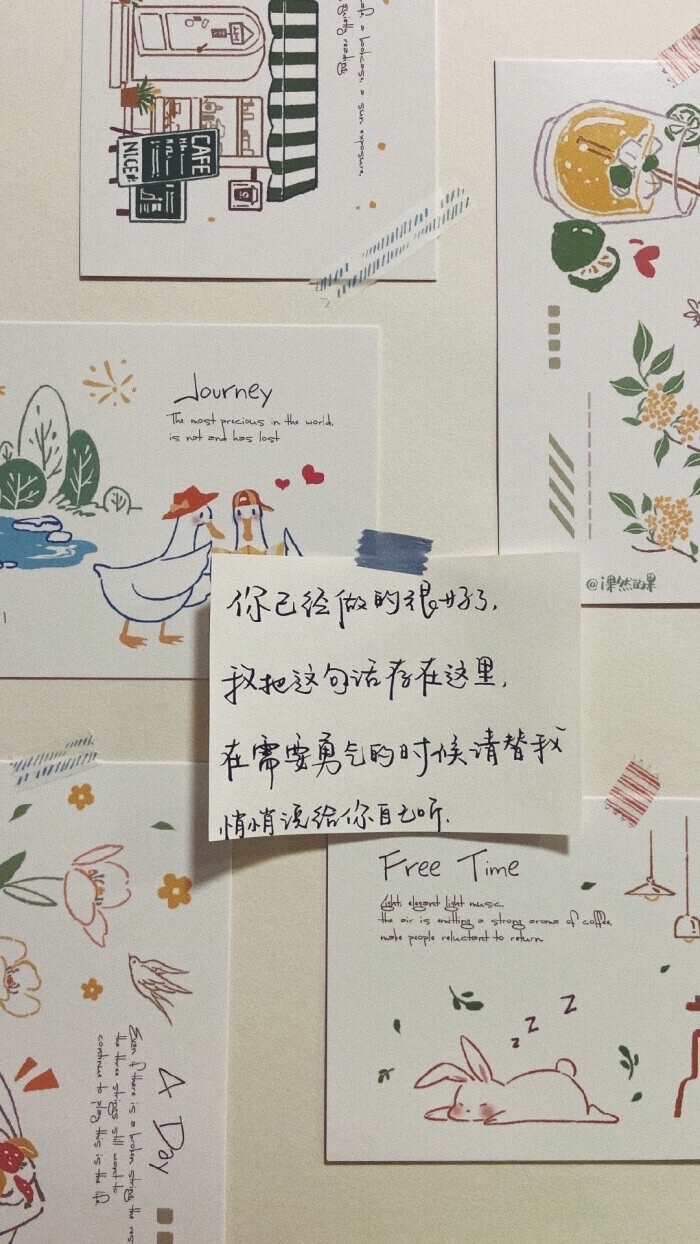 cafe, a bookcase, a sun exposure,
quietly reading
CAFE
NICE
Journey
The most precious in the world,
is not and has lost
@i果然的果
你已经做的很好了,
我把这句话存在这里,
在需要勇气的时候请替我
悄悄说给你自己听.
Free Time
Light, elegant light music,
the air is emitting a strong aroma of coffee
make people reluctant to return
z z z
A Day
Even if there is a broken strings the res
the three strings still want to
continue to play this is the life